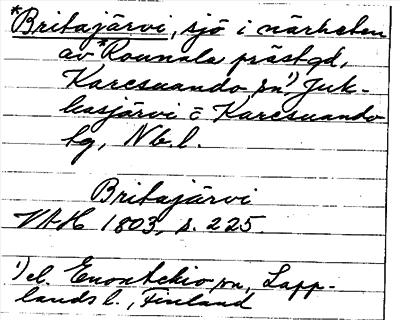 *Britajärvi, sjö i närheten
av *Rounala prästgd,
Karesuando sn¹), Juk-
kasjärvi o Karesuando
tg, Nb.l.
Britajärvi
VAH 1803, s. 225.
¹) el. Enontekio sn, Lapp-
lands l., Finland